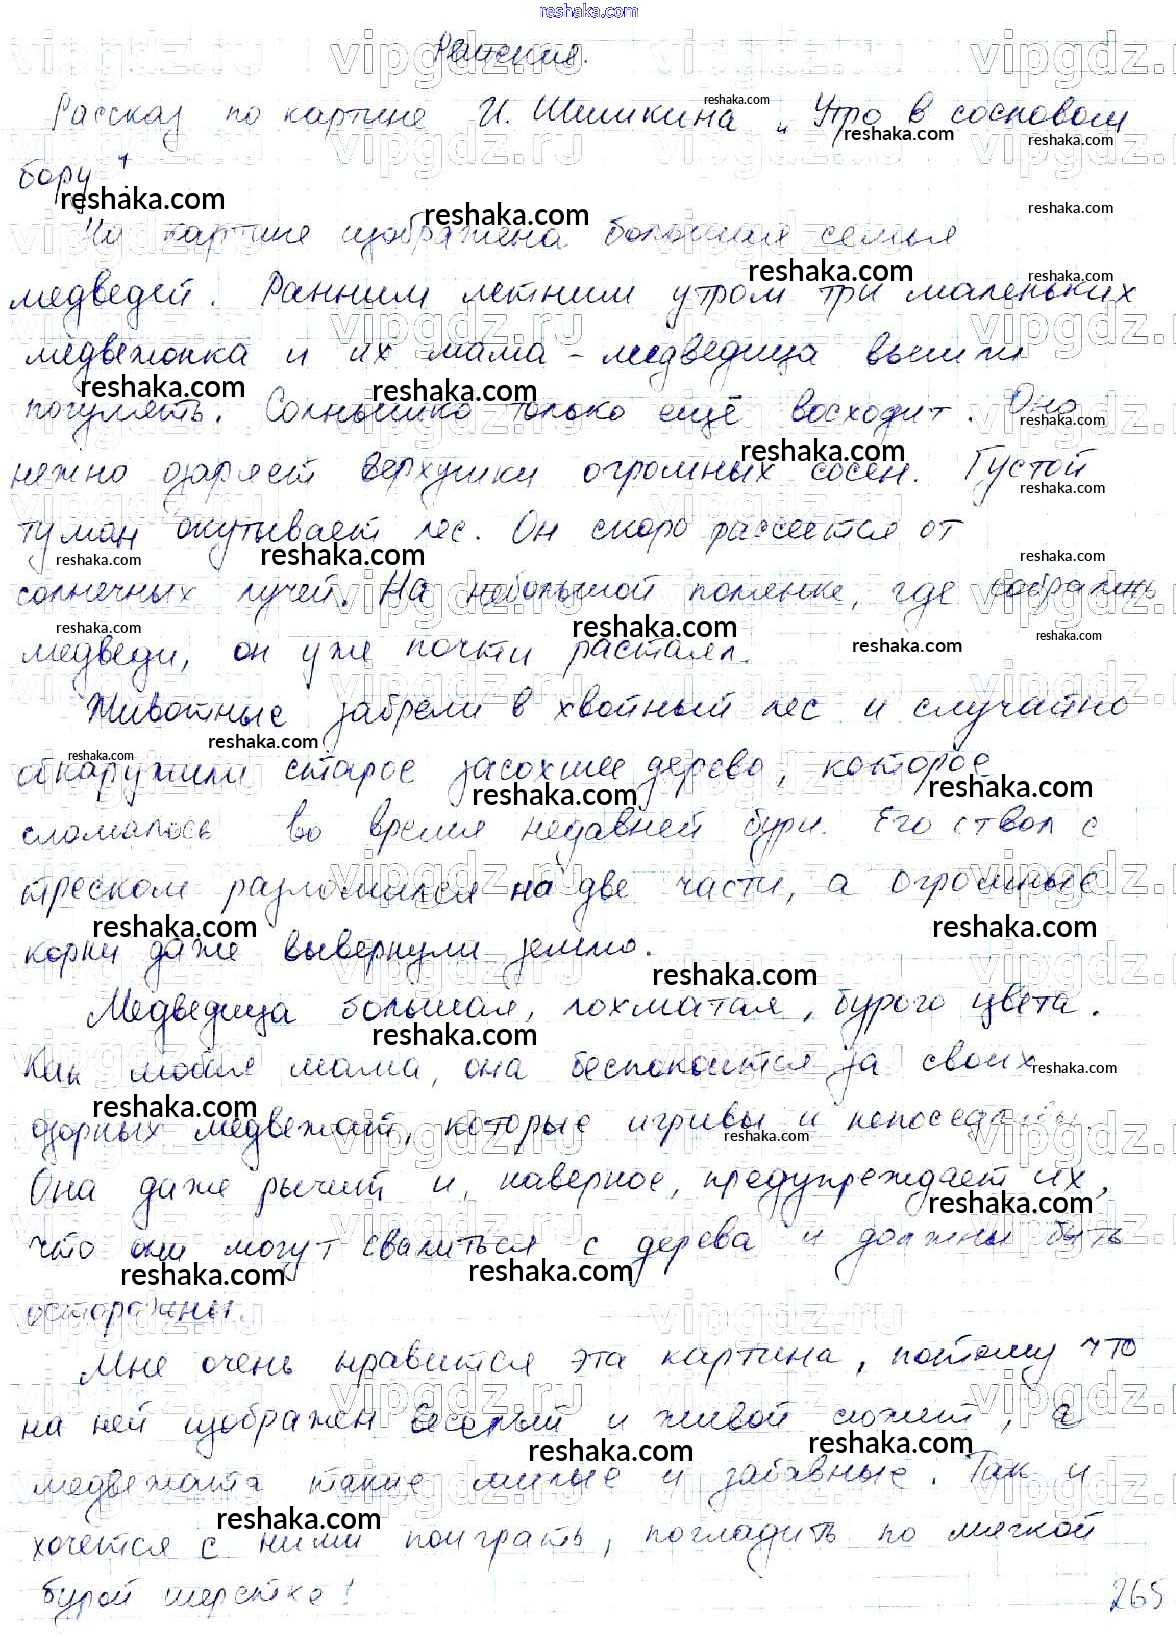 reshaka.com
Решение.
Рассказ по картине И. Шишкина „Утро в сосновом
бору".
На картине изображена большая семья
медведей. Ранним летним утром три маленьких
медвежонка и их мама – медведица вышли
погулять. Солнышко только ещё восходит. Оно
нежно озаряет верхушки огромных сосен. Густой
туман окутывает лес. Он скоро рассеется от
солнечных лучей. На небольшой полянке, где собрались
медведи, он уже почти растаял.
Животные забрели в хвойный лес и случайно
обнаружили старое засохшее дерево, которое
сломалось во время недавней бури. Его ствол с
треском разломился на две части, а огромные
корни даже вывернули землю.
Медведица большая, лохматая, бурого цвета.
Как любая мама, она беспокоится за своих
озорных медвежат, которые игривы и непоседливы.
Она даже рычит и, наверное, предупреждает их,
что они могут свалиться с дерева и должны быть
осторожны.
Мне очень нравится эта картина, потому что
на ней изображен весёлый и живой сюжет, а
медвежата такие милые и забавные. Так и
хочется с ними поиграть, погладить по мягкой
бурой шерстке!
265